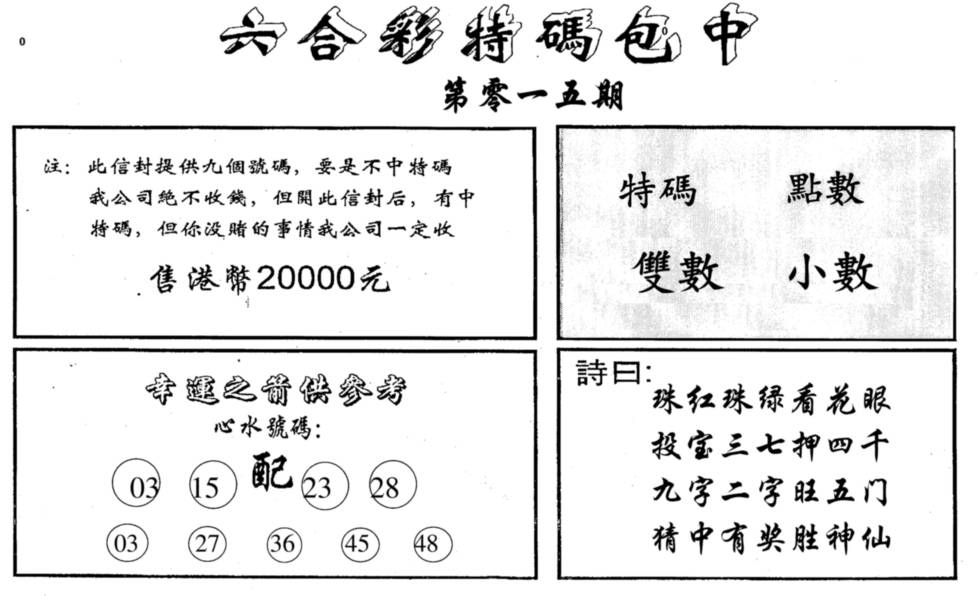 0
六合彩特碼包中
第零一五期
注：此信封提供九個號碼，要是不中特碼
我公司絕不收錢，但開此信封后，有中
特碼，但你没賭的事情我公司一定收
售港幣20000元
特碼 點數
雙數 小數
幸運之箭供參考
心水號碼：
03 15 配 23 28
03 27 36 45 48
詩曰：
珠红珠绿看花眼
投宝三七押四千
九字二字旺五门
猜中有奖胜神仙